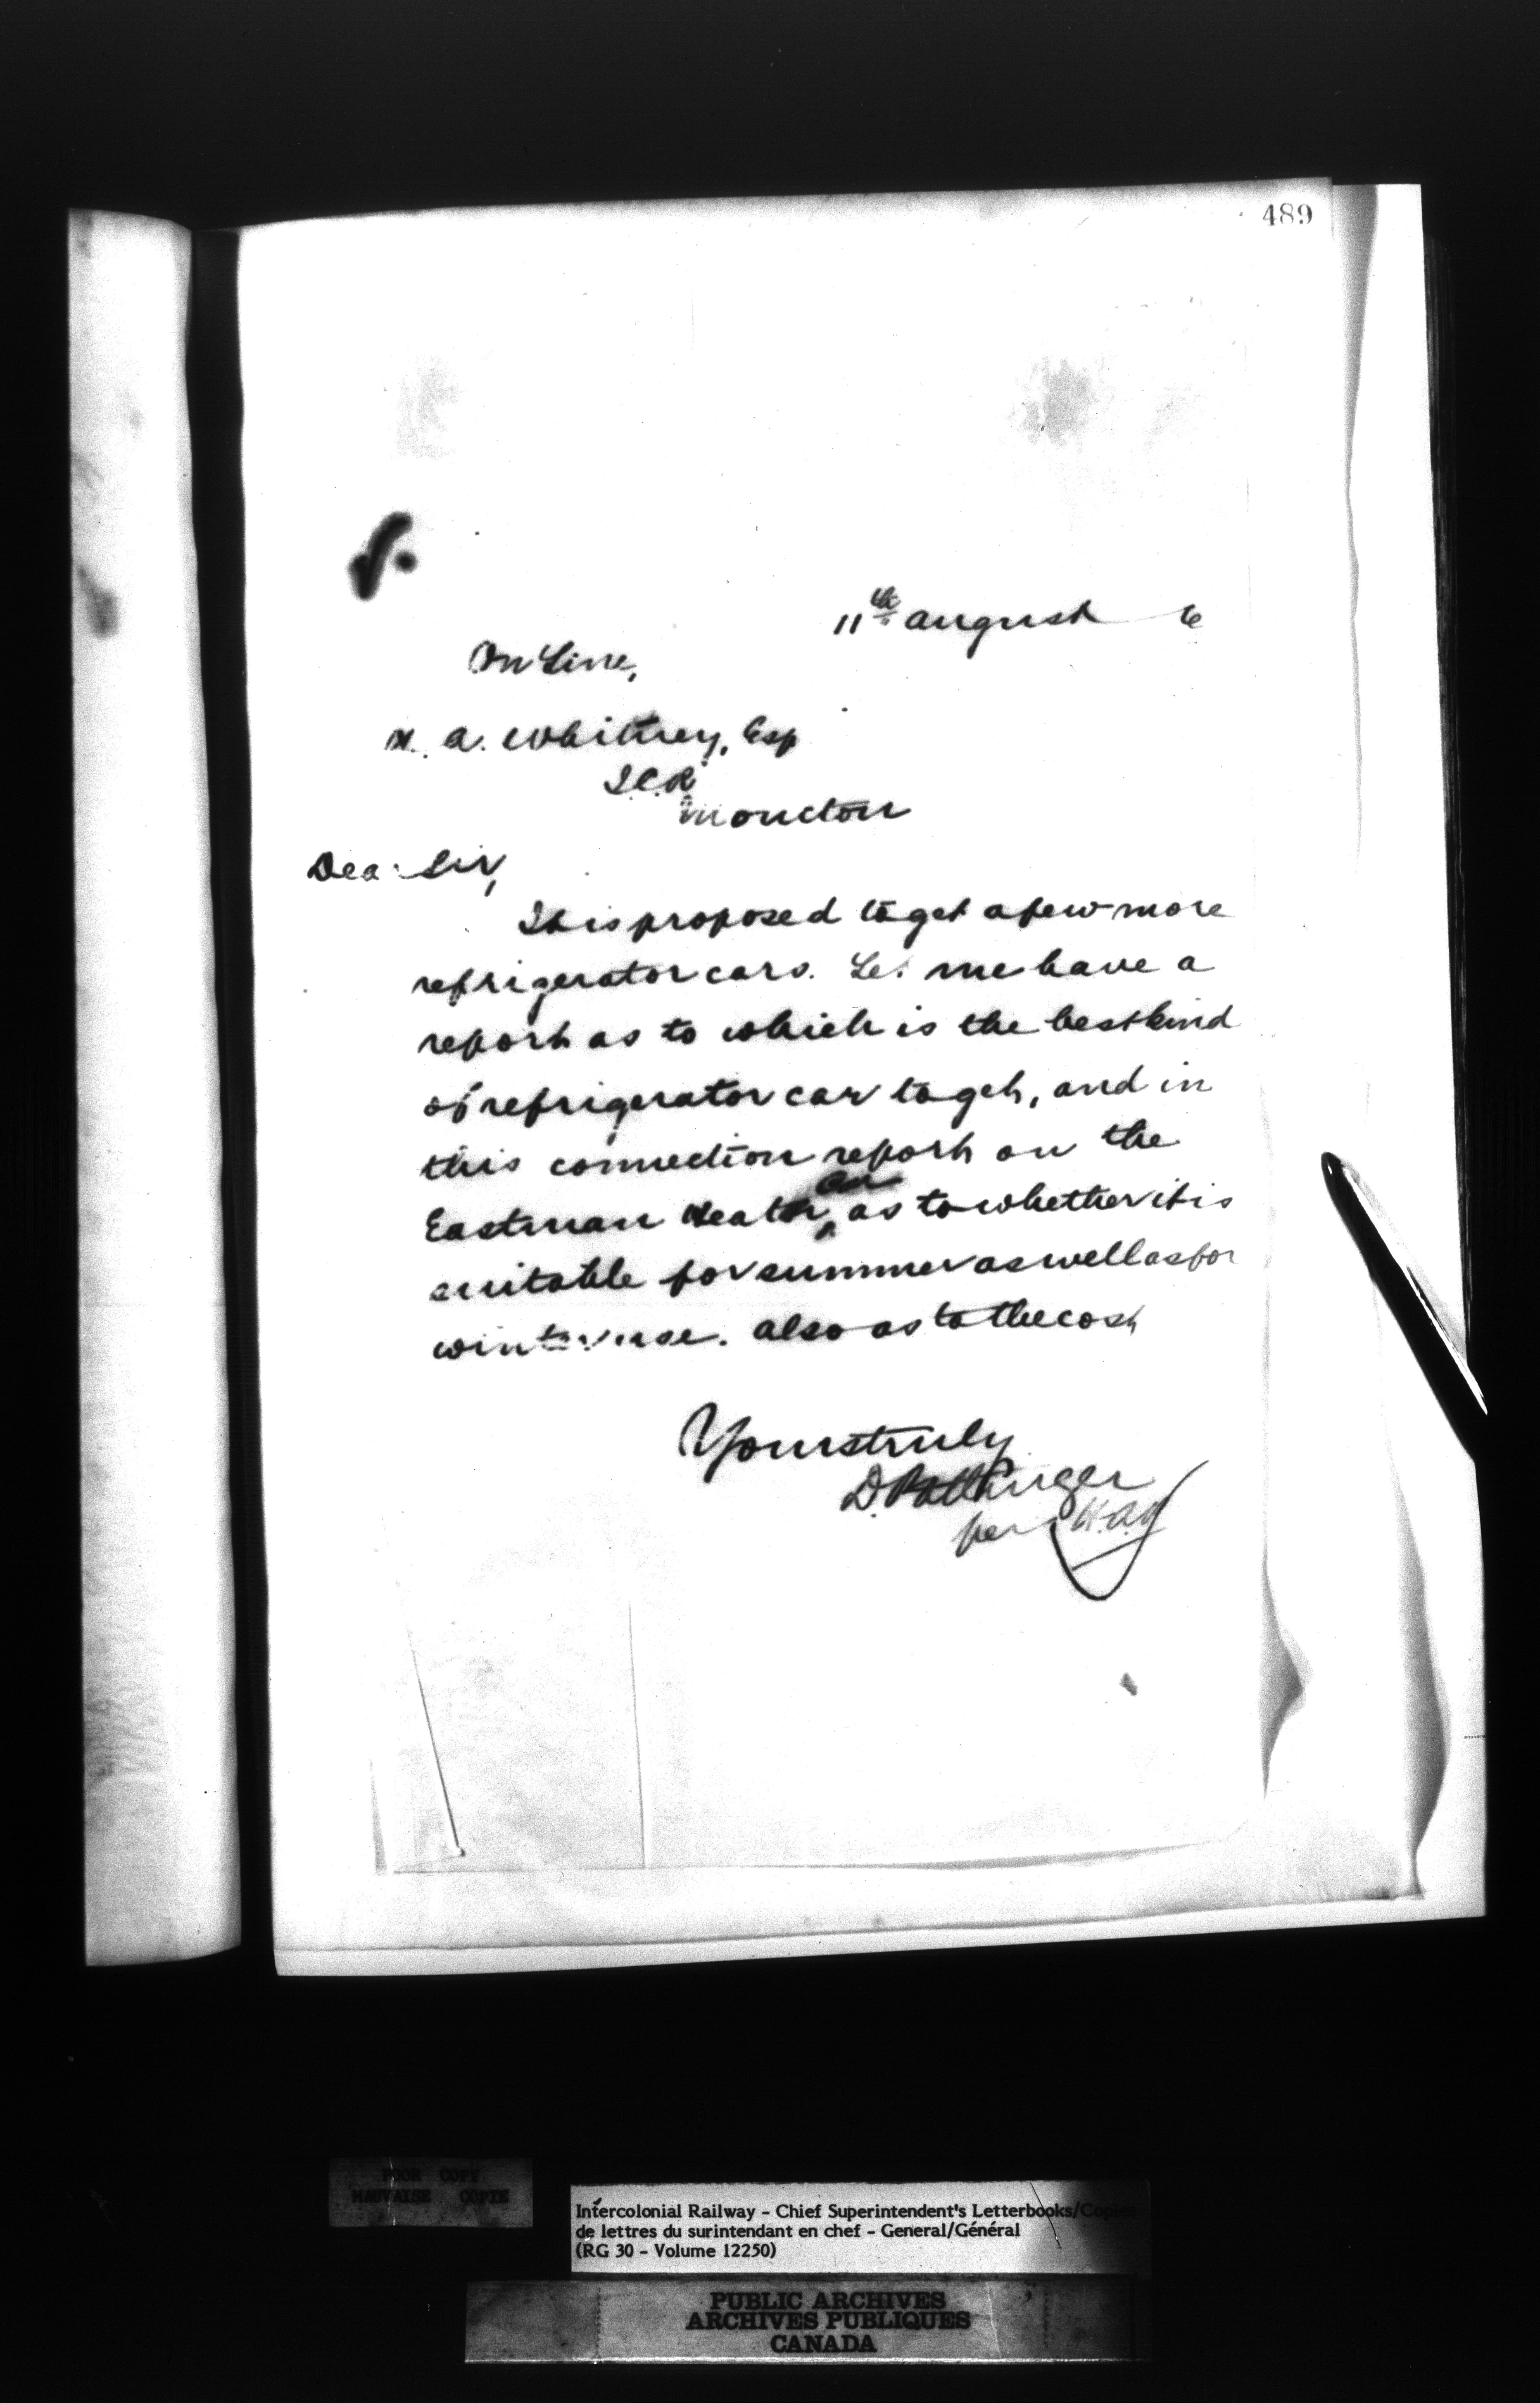 489
11th August 6
On Line,
H. A. Whitney, Esq
I.C.R.
Moncton
Dear Sir,
It is proposed to get a few more
refrigerator cars. Let me have a
report as to which is the best kind
of refrigerator car to get, and in
this connection report on the
Eastman Heater car as to whether it is
suitable for summer as well as for
winter use. Also as to the cost
Yours truly
D. Pottinger
per
POOR COPY
MAUVAISE COPIE
Intercolonial Railway - Chief Superintendent's Letterbooks/Copies
de lettres du surintendant en chef - General/Général
(RG 30 - Volume 12250)
PUBLIC ARCHIVES
ARCHIVES PUBLIQUES
CANADA